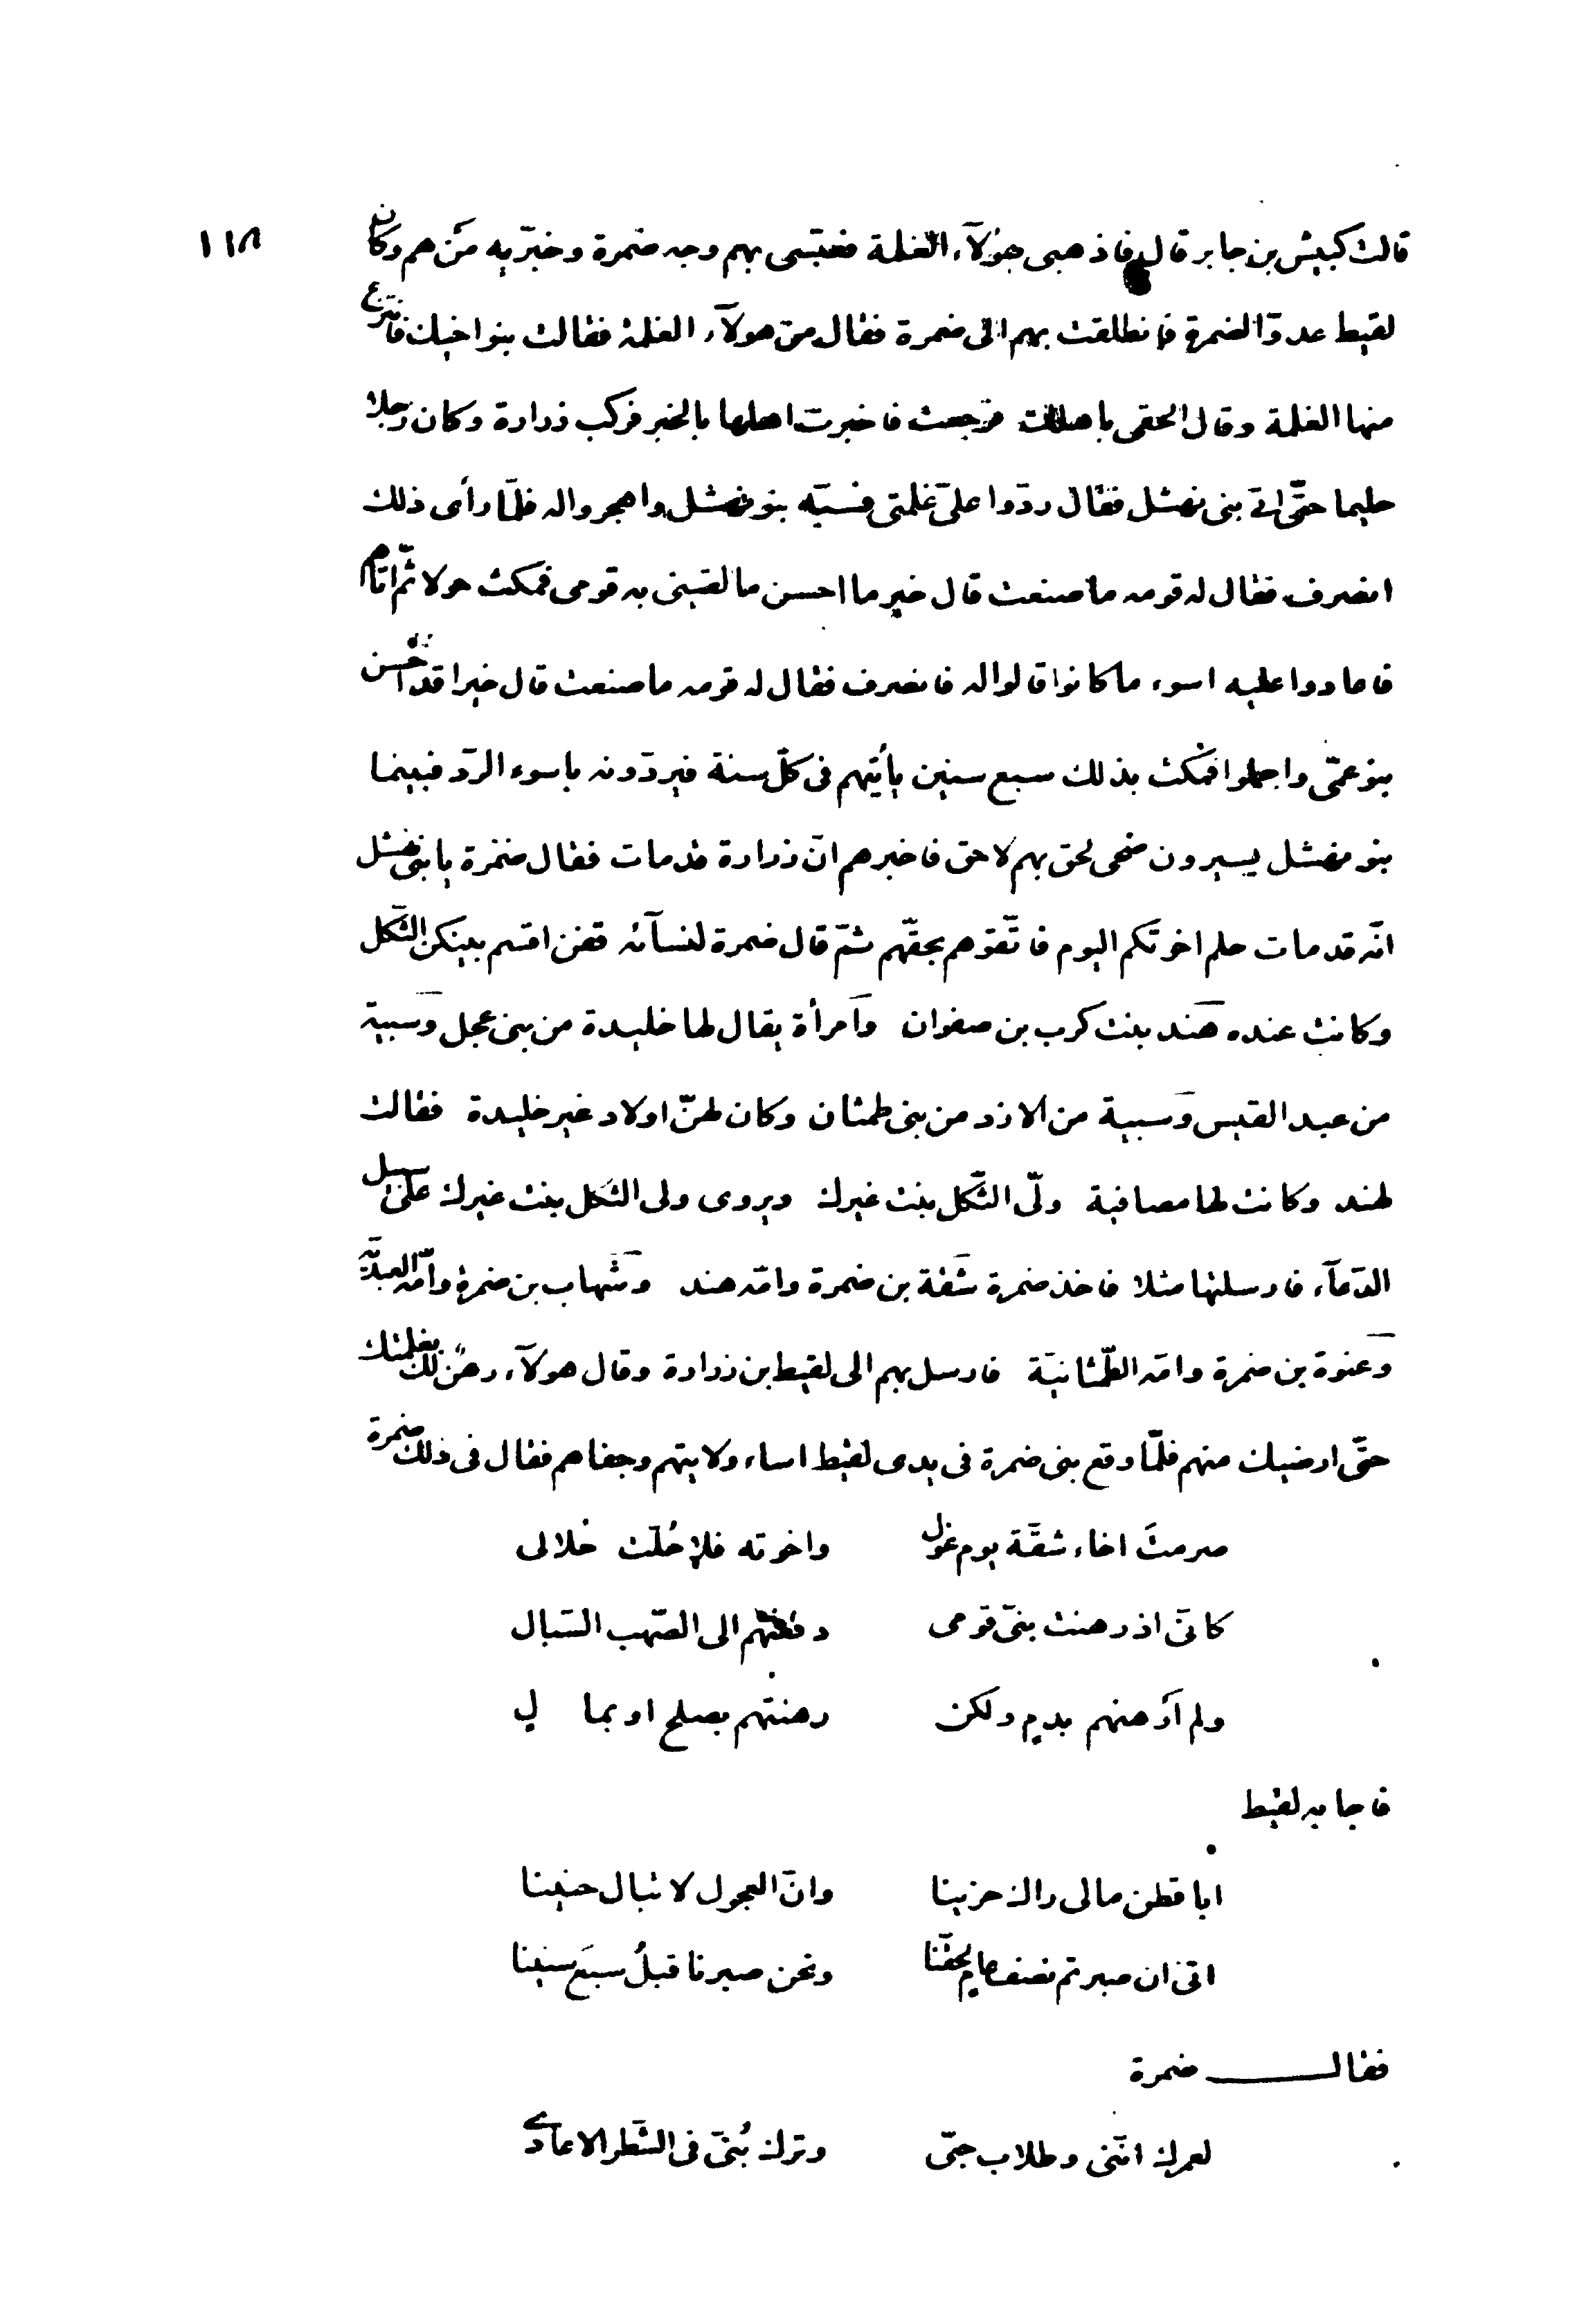 ١١٨
قالت كبيش بن جابر قال فاذهبى بهؤلآء الغلمة فعبّسى بهم وجه ضمرة وخبّريه مَن هم وكان
لقيط عدوّا لضمرة فانطلقت بهم الى ضمرة فقال من هولآء الغلمة فقالت بنو اخيك فانتزع
منها الغلمة وقال الحقى باهلك فرجعت فاخبرت اهلها بالخبر فركب زرارة وكان رجلا
حليما حتّى اتى بنى نهشل فقال ردّوا علىّ غلمتى فسبّه بنو نهشل واهجروا له فلمّا رأى ذلك
انصرف فقال له قومه ما صنعت قال خير ما احسن ما لقينى به قومى فمكث حولا ثمّ اتاهم
فاعادوا عليه اسوء ما كانوا قالوا له فانصرف فقال له قومه ما صنعت قال خيرا قد احسن
بنو عمّى واجملوا فمكث بذلك سبع سنين يأتيهم فى كلّ سنة فيردّونه باسوء الردّ فبينما
بنو نهشل يسيرون ضحى لحق بهم لاحق فاخبرهم انّ زرارة قد مات فقال ضمرة يا بنى نهشل
انّه قد مات حلم اخوتكم اليوم فاتّقوهم بحقّهم ثمّ قال ضمرة لنسآئه قفن اقسم بينكن الثّكل
وكانت عنده هند بنت كرب بن صفوان وامرأة يقال لها خليدة من بنى عجل وسبية
من عبد القيس وسبية من الازد من بنى طمثان وكان لهنّ اولاد غير خليدة فقالت
لهند وكانت لها مصافية ولّى الثّكل بنت غيرك ويروى ولى الثّكل بنت غيرك على سبيل
الدّعآء فارسلتها مثلا فاخذ ضمرة شقّة بن ضمرة وامّه هند وشهاب بن ضمرة وامّه العبديّة
وعنوة بن ضمرة وامّه الطّمثانيّة فارسل بهم الى لقيط بن زرارة وقال هولآء رهن لك بغلمتك
حتّى ارضيك منهم فلمّا وقع بنى ضمرة فى يدى لقيط اساء ولايتهم وجفاهم فقال فى ذلك ضمرة
صرمتَ اخاء شقّة يوم غول واخوته فلا حُلّت خلالى
كانّى اذ رهنت بنىّ قومى دفعتهم الى الصّهب السّبال
ولم أرهنهم بدمٍ ولكن رهنتهم بصلح او بمالِ
فاجابه لقيط
ابا قطن مالى راك حزينا وانّ العجول لا تبال حنينا
اتى ان صبرتم نصف عامٍ لحقّنا ونحن صبرنا قبلُ سبعَ سنينا
فقال ضمرة
لعمرك انّنى وطلاب حبّى وترك بُنىّ فى الشّطر الاعادى